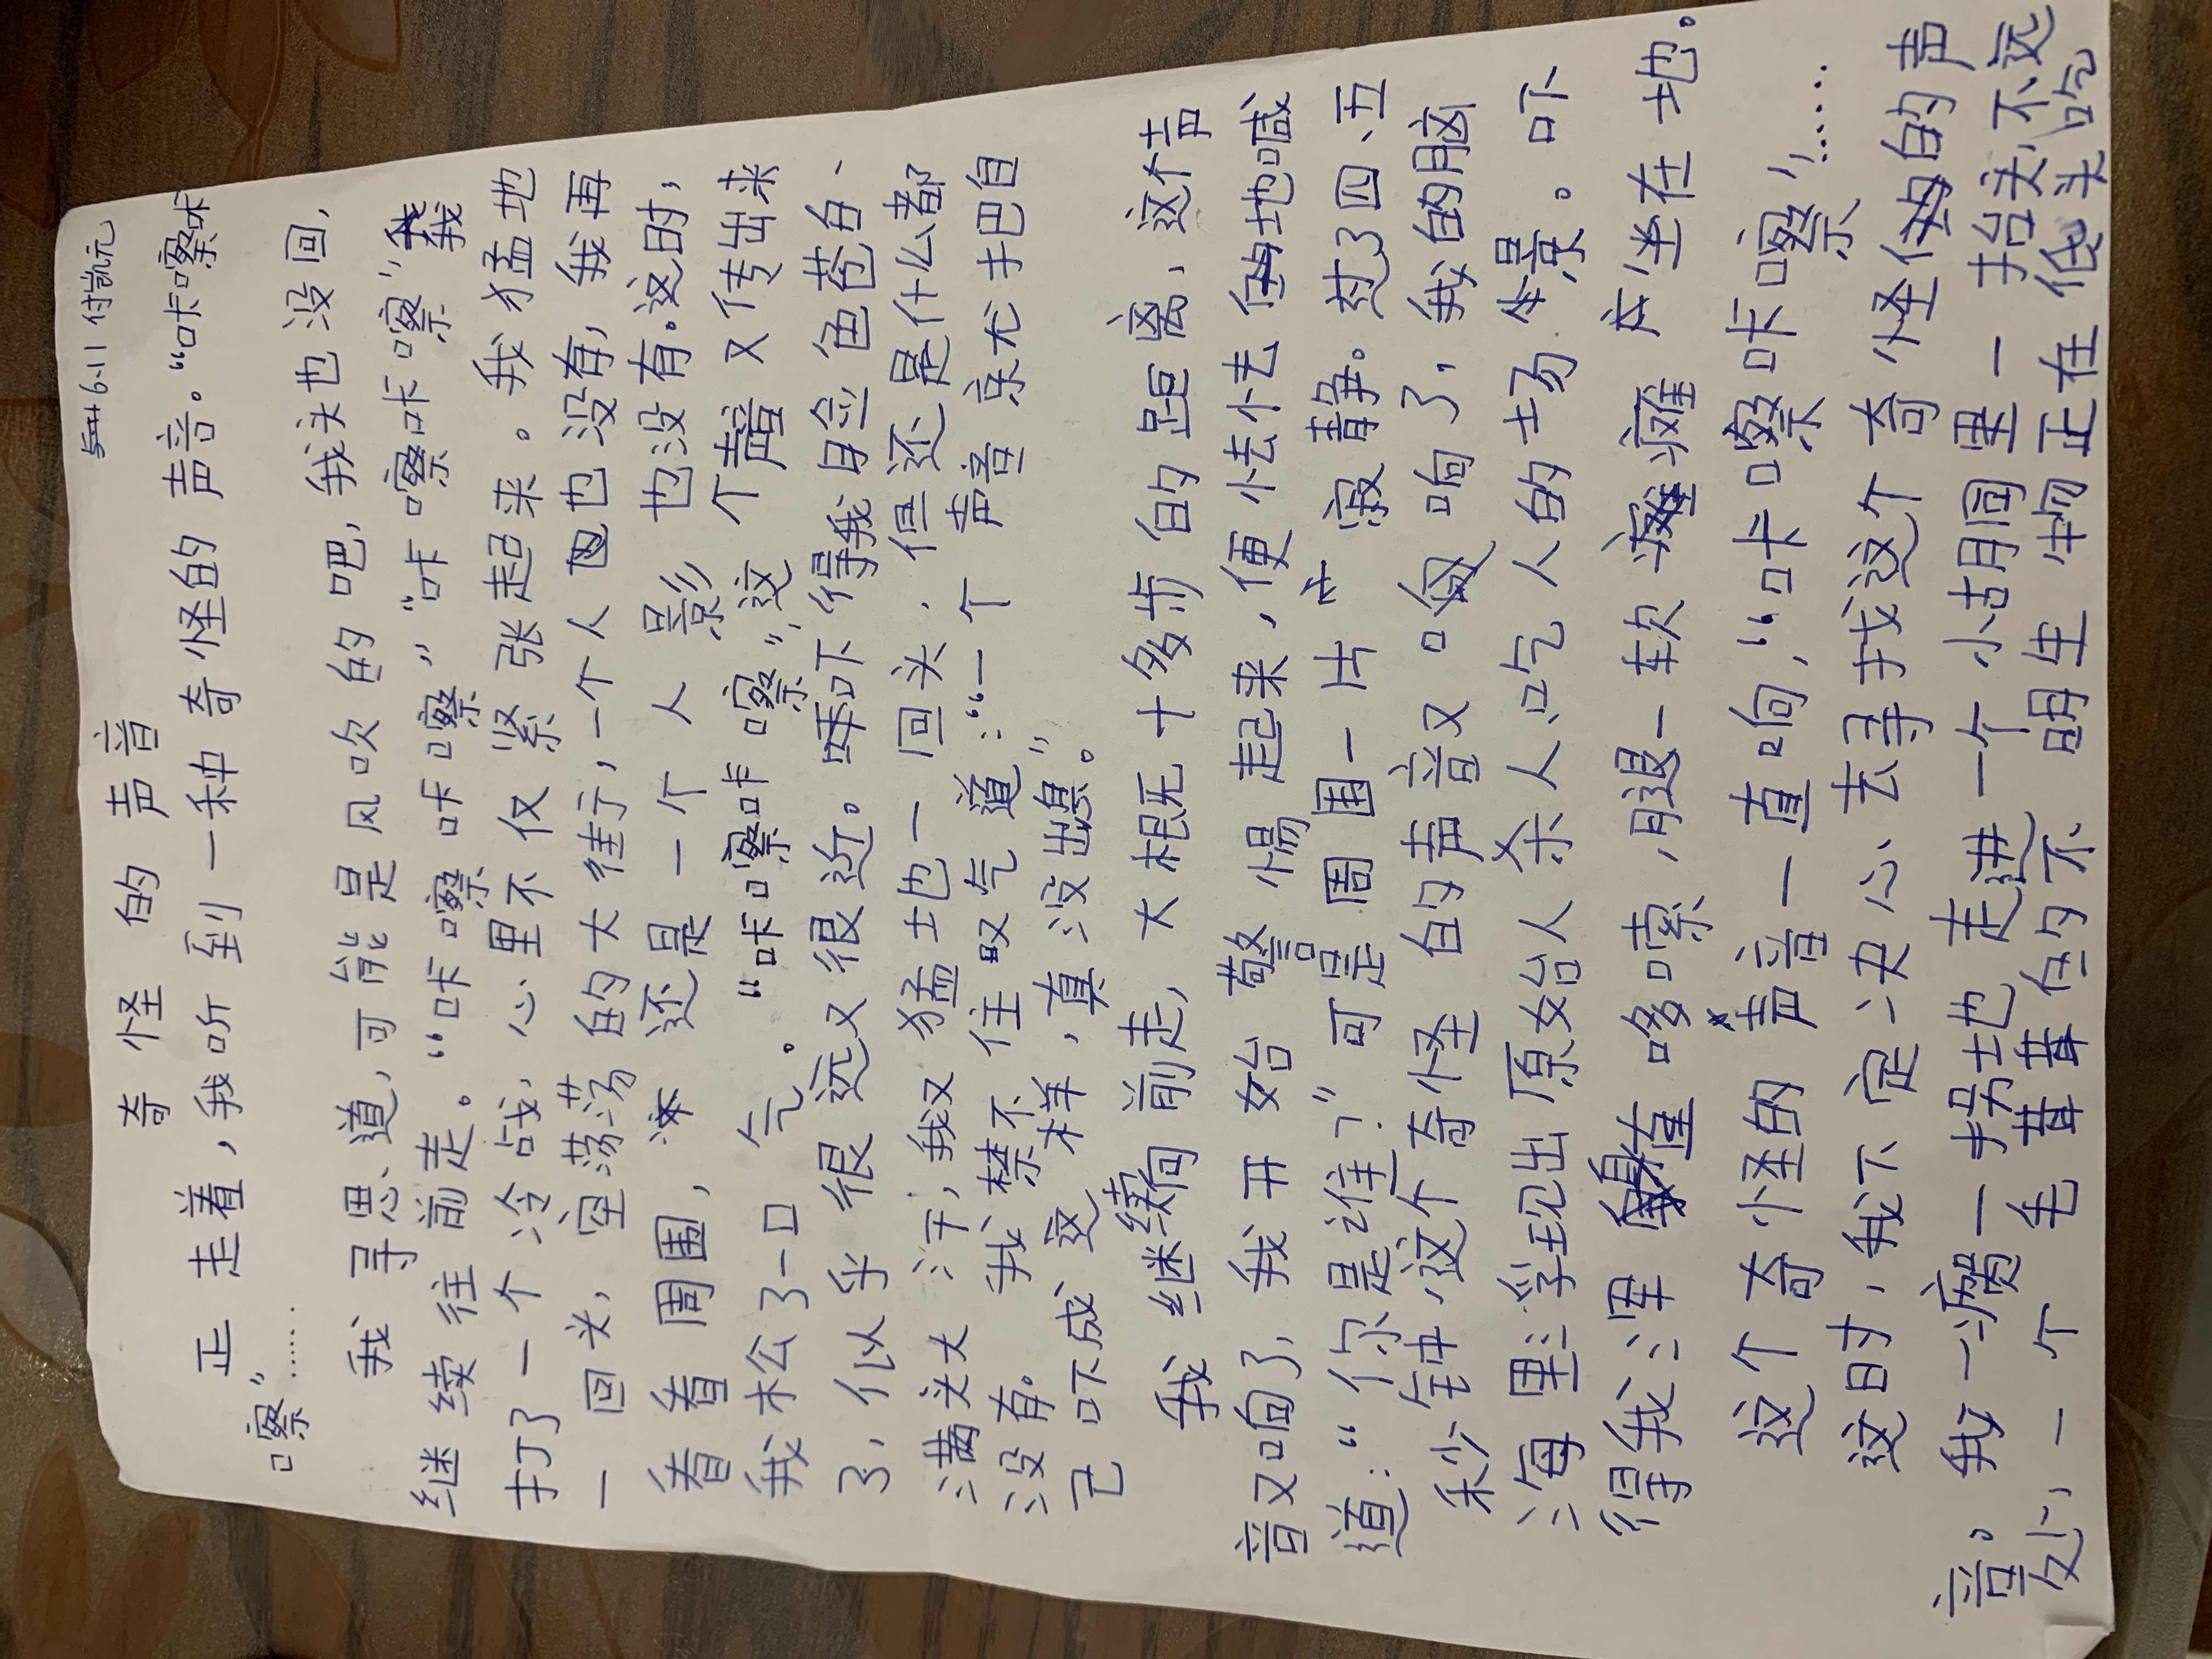 6.11 付凯元
奇怪的声音
正走着，我听到一种奇怪的声音。“咔嚓咔
嚓”……
我寻思道，可能是风吹的吧，我头也没回，
继续往前走。“咔嚓咔嚓”“咔嚓咔嚓”我
打了一个冷战，心里不仅紧张起来。我猛地
一回头，空荡荡的大街，一个人也没有，我再
看看周围，还是一个人影也没有。这时，
我松了一口气。“咔嚓咔嚓”，这个声音又传出来
了，似乎很远又很近。吓得我脸色苍白、
满头大汗，我又猛地一回头，但还是什么都
没有。我禁不住叹气道：“一个声音就把自
己吓成这样，真没出息”。
我继续向前走，大概十多步的距离，这个声
音又响了，我开始警惕起来，便怯怯地喊
道：“你是谁？”可是周围一片寂静。过了四、五
秒钟，这个奇怪的声音又响了，我的脑
海里浮现出原始人杀人吃人的场景。吓
得我浑身直哆嗦，腿一软瘫坐在地。
这个奇怪的声音一直响，“咔嚓咔嚓”……
这时，我下定决心去寻找这个奇怪的声
音。我一瘸一拐地走进一个小胡同里一抬头，不远
处，一个毛茸茸的不明生物正在低头吃